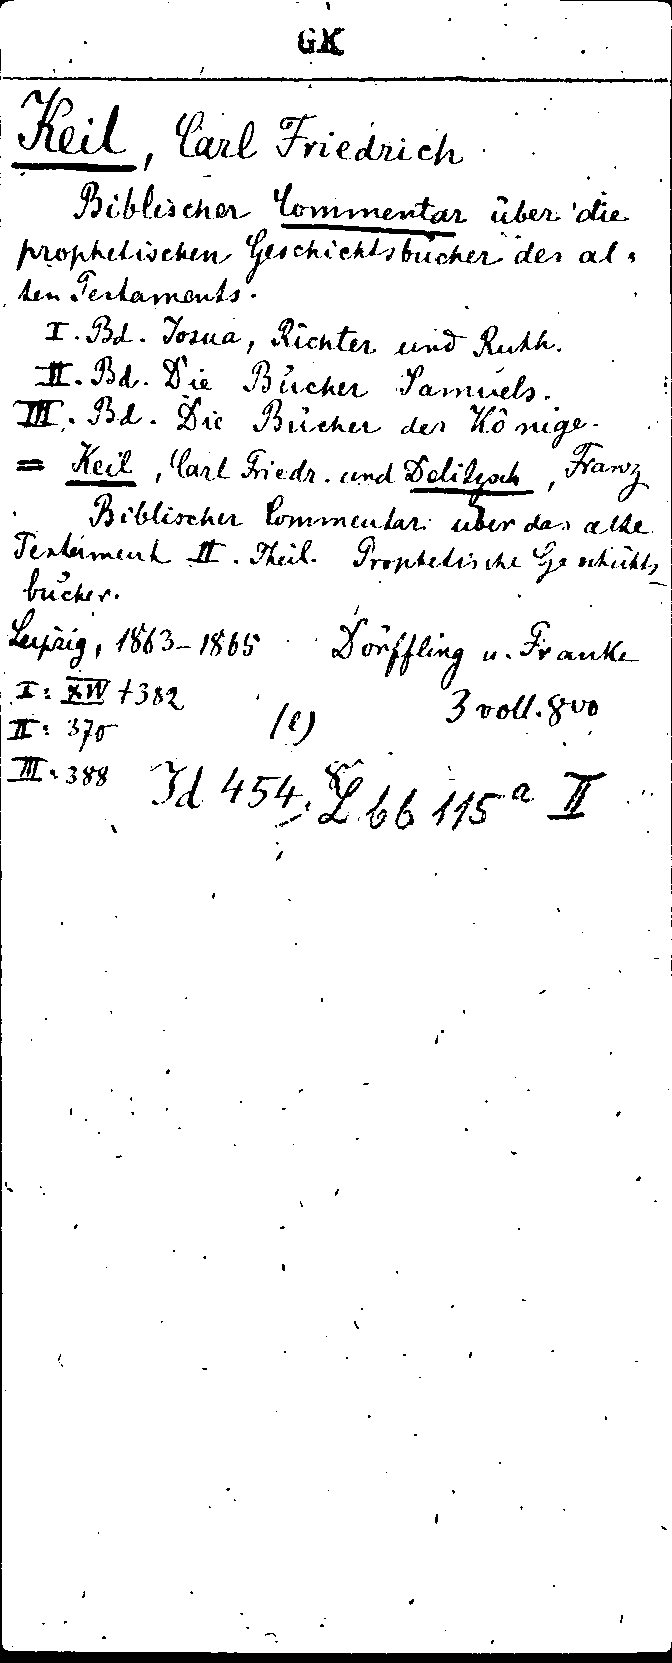 GK
Keil, Carl Friedrich
Biblischer Commentar über die
prophetischen Geschichtsbücher des al-
ten Testaments.
I. Bd. Josua, Richter und Ruth.
II. Bd. Die Bücher Samuels.
III. Bd. Die Bücher der Könige.
= Keil, Carl Friedr. und Delitzsch, Franz
Biblischer Commentar über das alte
Testament II. Theil. Prophetische Geschichts-
bücher.
Leipzig, 1863-1865 Dörffling u. Franke
I: XIV + 382
(l) 3 voll. 8vo
II: 370
III: 388
Id 454. L 66 115 a II